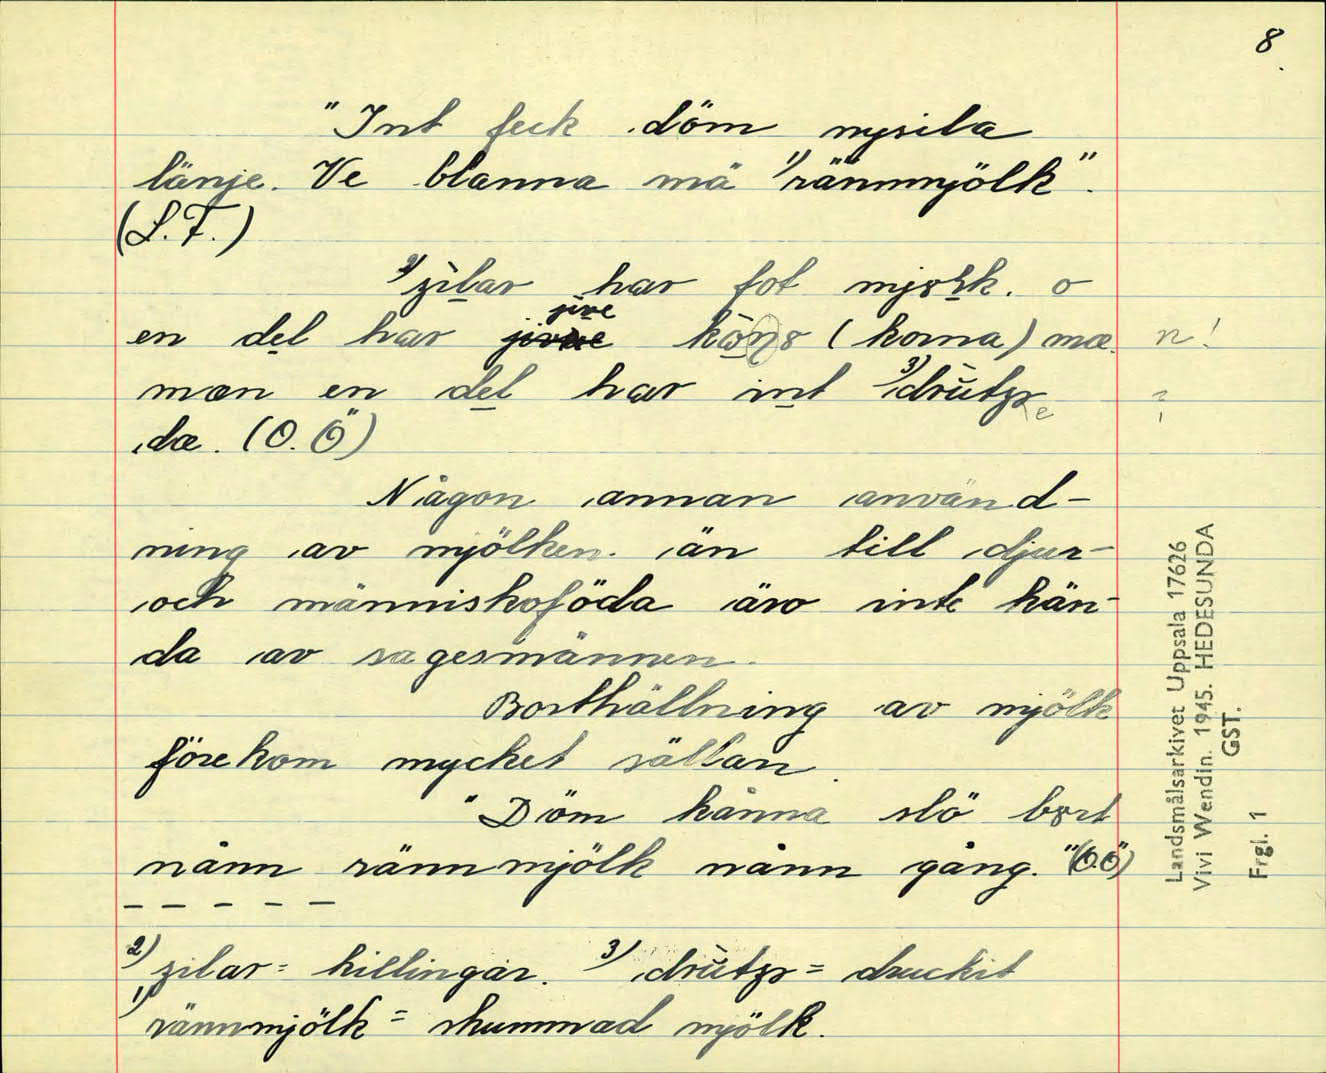 8
"Int feck döm nysila
länje. Ve blanna mä 1) rännmjölk".
(S.F.)
2) zìlar har fot mjɞlk. o
en del har jive kòṇɞ (korna) mæ. n!
mæn en del har int 3) drùtzɞ e ?
dæ. (O.Ö)
Någon annan använd-
ning av mjölken än till djur-
och människoföda äro inte kän-
da av sagesmännen.
Borthällning av mjölk
förekom mycket sällan.
"Döm kånna slö bɞrt
nånn rännmjölk nånn gång." (O.Ö)
- - - - -
2) zilar = killingar. 3) drùtzɞ = druckit
1) rännmjölk = skummad mjölk.
Landsmålsarkivet Uppsala 17626
Vivi Wendin. 1945. HEDESUNDA
GST.
Frgl. 1